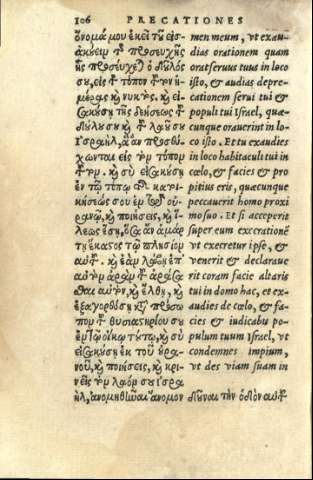 106 PRECATIONES
ὄνομά μου ἐκεῖ τοῦ εἰσ-
ακούειν τῆς προσευχῆς
ἧς προσεύχεται ὁ δοῦλός
σου, εἰς τὸν τόπον τοῦτον ἡ-
μέρας καὶ νυκτὸς. καὶ εἰ-
σακούσῃ τῆς δεήσεως τοῦ
δούλου σου καὶ τοῦ λαοῦ σου
Ἰσραὴλ, ἃ ἂν προσεύ-
χωνται εἰς τὸν τόπον
τοῦτον. καὶ σὺ εἰσακούσῃ
ἐν τῷ τόπῳ τῆς κατοι-
κήσεώς σου ἐν τῷ οὐ-
ρανῷ, καὶ ποιήσεις, καὶ ἵ-
λεως ἔσῃ, ὅσα ἂν ἁμάρ-
τῃ ἕκαστος τῷ πλησίον
αὐτοῦ. καὶ ἐὰν λάβῃ ἐπ'
αὐτὸν ἀρὰν τοῦ ἀρᾶσ-
θαι αὐτὸν, καὶ ἔλθῃ, καὶ
ἐξαγορεύσῃ κατὰ πρόσω-
πον τοῦ θυσιαστηρίου σου
ἐν τῷ οἴκῳ τούτῳ, καὶ σὺ
εἰσακούσῃ ἐκ τοῦ οὐρα-
νοῦ, καὶ ποιήσεις, καὶ κρι-
νεῖς τὸν λαόν σου Ἰσρα-
ήλ, ἀνομηθῆναι ἄνομον δοῦναι τὴν ὁδὸν αὐτοῦ
men meum, vt exau-
dias orationem quam
orat seruus tuus in loco
isto, & audias depre-
cationem serui tui &
populi tui Israel, quæ-
cunque orauerint in lo-
co isto. Et tu exaudies
in loco habitaculi tui in
cœlo, & facies & pro
pitius eris, quæcunque
peccauerit homo proxi
mo suo. Et si acceperit
super eum execrationē
vt execretur ipse, &
venerit & declaraue
rit coram facie altaris
tui in domo hac, et ex-
audies de cœlo, & fa-
cies & iudicabis po-
pulum tuum Israel, vt
condemnes impium,
vt des viam suam in